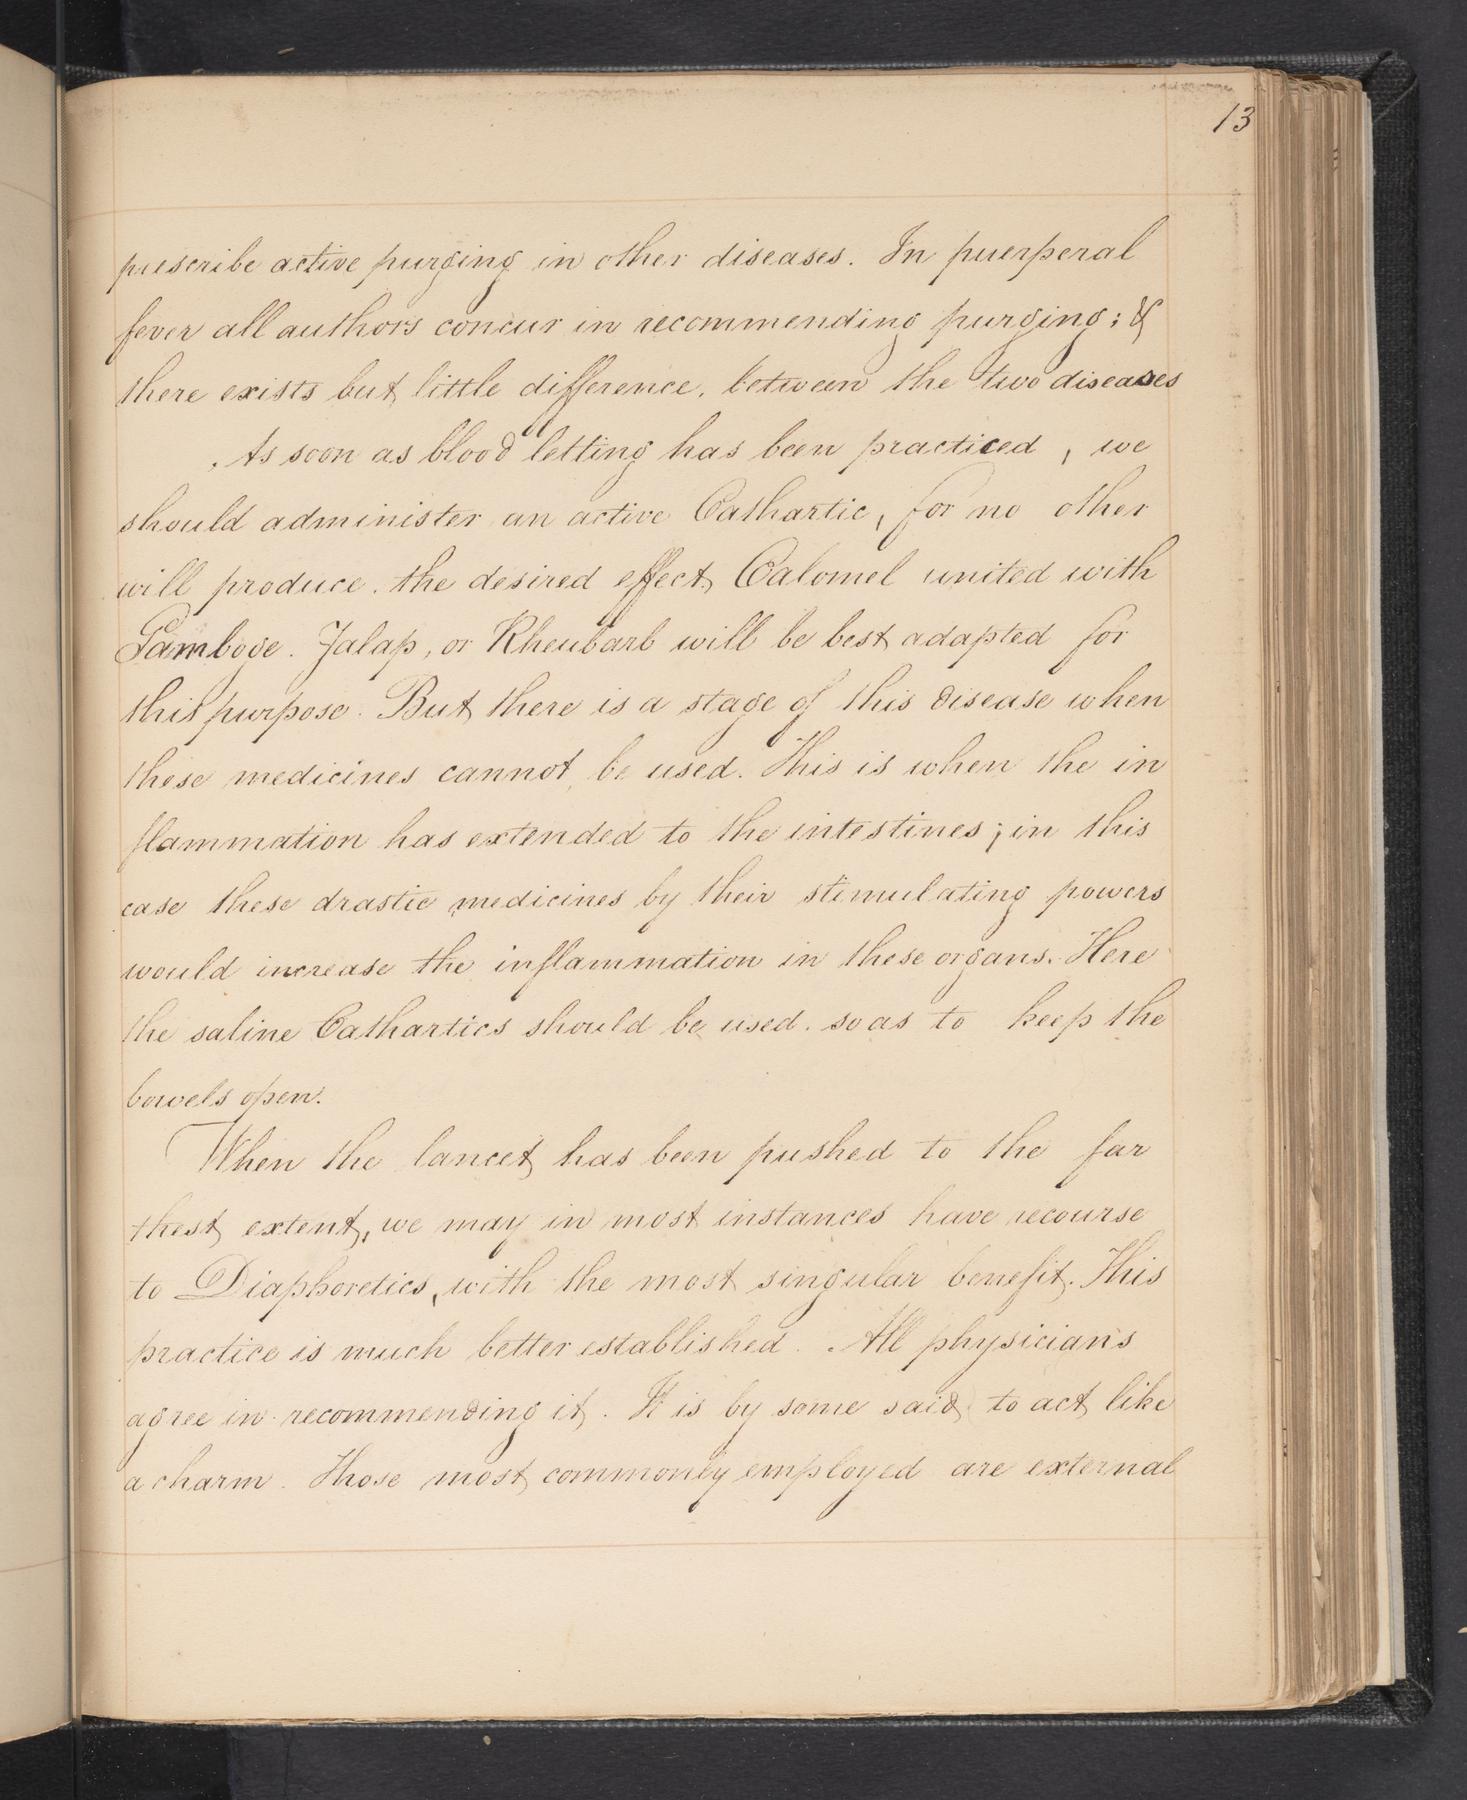 13
prescribe active purging in other diseases. In puerperal
fever all authors concur in recommending purging; &
there exists but little difference, between the two diseases
As soon as blood letting has been practiced, we
should administer an active Cathartic, for no other
will produce the desired effect, Calomel united with
Gamboge. Jalap, or Rheubarb will be best adapted for
this purpose. But there is a stage of this disease when
these medicines cannot be used. This is when the in
flammation has extended to the intestines; in this
case these drastic medicines by their stimulating powers
would increase the inflammation in these organs. Here
the saline Cathartics should be used. so as to keep the
bowels open.
When the lancet has been pushed to the far
thest extent, we may in most instances have recourse
to Diaphoretics, with the most singular benefit. This
practice is much better established. All physicians
agree in recommending it. It is by some said to act like
a charm. Those most commonly employed are external